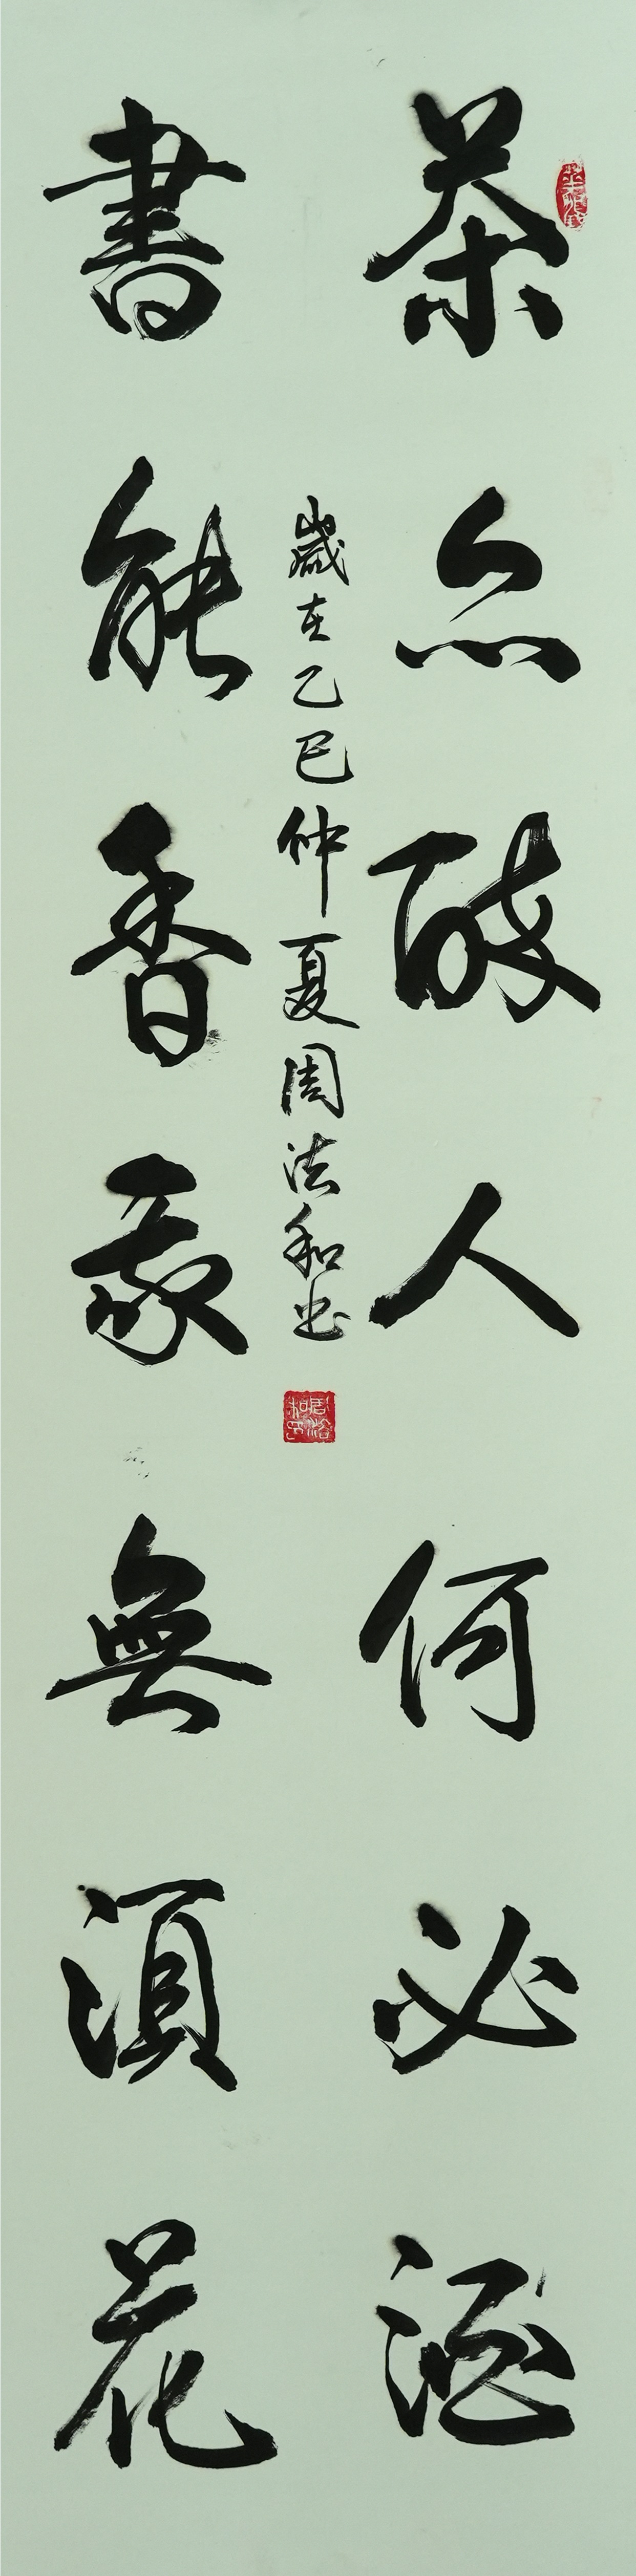 茶亦醉人何必酒
書能香我無須花
歲在乙巳仲夏周法和书
周法和印